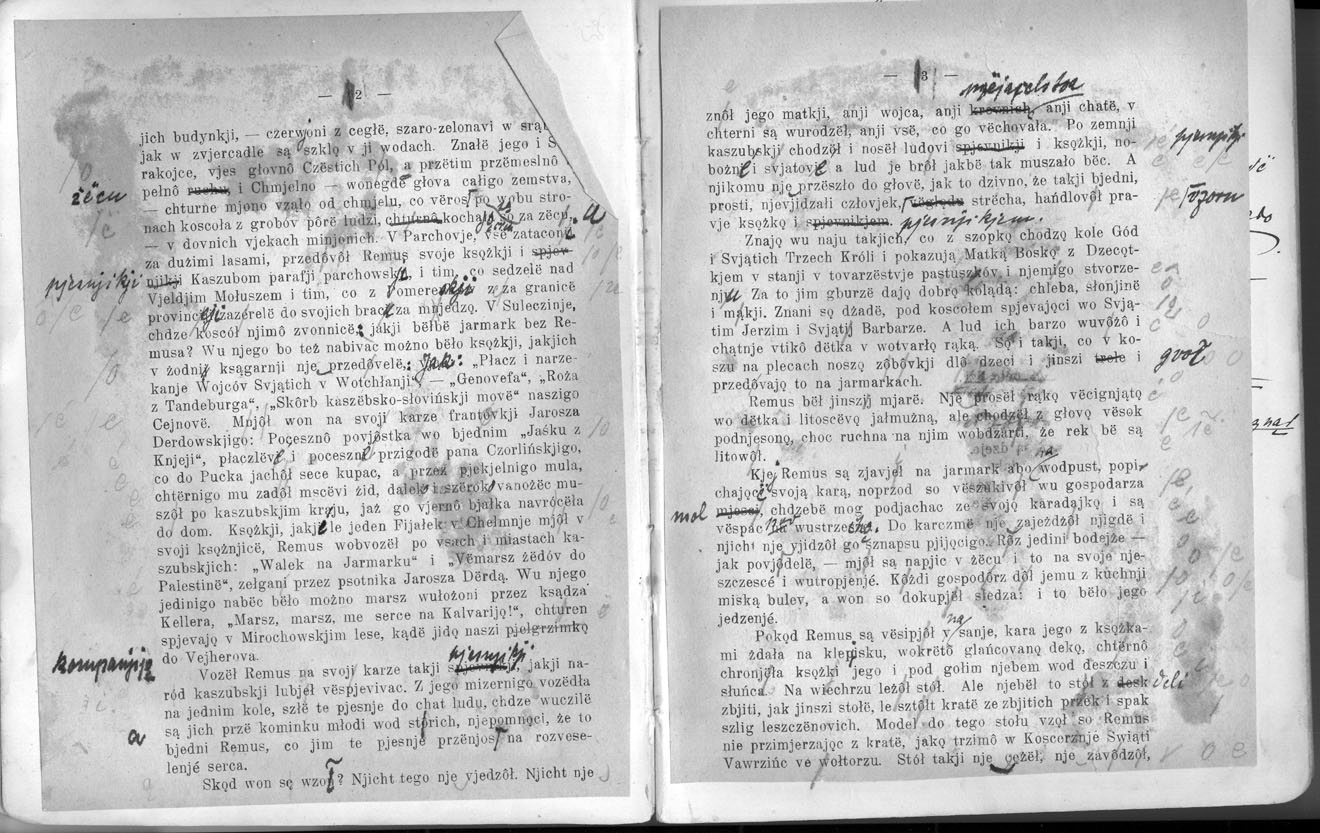 — 2 —
jich budynkji, — czerwjoni z cegłë, szaro-zelonavi w
jak w zvjercadle są szklǫ v ji wodach. Znałë jego i
rakojce, vjes głovnô Czëstich Pól, a przëtim przëmeslnô
žëcu
pełnô ruchu, i Chmjelno — wonegdë głova całigo zemstva,
— chturne mjono vząło od chmjelu, co vëros po wobu stro-
nach koscoła z grobóv pôrë ludzi, chturnô kochała so za zëcu,
— v dovnich vjekach minjonich. V Parchovje, vsë zataconi
za dużimi lasami, przedôvôł Remus svoje ksǫżkji i spjev-
pjesnjikji
njikji Kaszubom parafji parchowskji, i tim, co sedzelë nad
Vjeldjim Mołuszem i tim, co z Pomereskji ze za granicë
provincëji zazérelë do svojich braci za mjedzǫ. V Suleczinje,
chdze koscół njimô zvonnicë, jakji bëłbë jarmark bez Re-
musa? Wu njego bo też nabivac możno bëło ksǫżkji, jakjich
v żodnji ksągarnji nje przedôvelë, jak: „Płacz i narze-
kanje Wojcóv Svjątich v Wotchłanji", — „Genovefa", „Roża
z Tandeburga", „Skôrb kaszëbsko-słovińskji movë" naszigo
Cejnovë. Mnjôł won na svoji karze frantóvkji Jarosza
Derdowskjigo: Pocesznô povjôstka wo bjednim „Jaśku z
Knjeji", płaczlëvi i pocesznë przigodë pana Czorlińskjigo,
co do Pucka jachôł sece kupac, a przez pjekjelnigo mula,
chtërnigo mu zadôł mscëvi żid, dalek i szërok vanożëc mu-
szôł po kaszubskjim kraju, jaż go vjernô bjałka navrócëła
do dom. Ksǫżkji, jakji le jeden Fijałek v Chełmnje mjôł v
svoji ksǫżnjicë, Remus wobvozëł po vsach i miastach ka-
szubskjich: „Walek na Jarmarku" i „Vëmarsz żëdóv do
Palestinë", zełgani przez psotnika Jarosza Dërdą. Wu njego
jedinigo nabëc bëło możno marsz wułożoni przez ksądza
Kellera, „Marsz, marsz, me serce na Kalvarijǫ!", chturen
spjevajǫ v Mirochowskjim lese, kądë jidǫ naszi pjelgrzimkǫ
kompanjiją
do Vejherova.
pjesnjikji
Vozëł Remus na svoji karze takji jakji na-
ród kaszubskji lubjeł vëspjevivac. Z jego mizernigo vozëdła
na jednim kole, szłë te pjesnje do chat ludu, chdze wuczilë
są jich przë kominku młodi wod storich, njepomnǫci, że to
a
bjedni Remus, co jim te pjesnje przënjos na rozvese-
lenjé serca.
Skǫd won sę wzoł? Njicht tego nje vjedzôł. Njicht nje
— 3 —
znôł jego matkji, anji wojca, anji krevnich anji chatë, v
chterni są wurodzëł, anji vsë, co go vëchovała. Po zemnji
kaszubskji chodzôł i nosëł ludovi spjevnikji i ksǫżkji, no-
bożni i svjatovi a lud je brôł jakbë tak muszało bëc. A
njikomu nje przëszło do głovë, jak to dzivno, że takji bjedni,
prosti, njevjidzałi człovjek, vzglądu strëcha, hańdlovôł pra-
vzoru
vje ksǫżkǫ i spjevnikjem. pjesnjikjem.
Znajǫ wu naju takjich, co z szopkǫ chodzǫ kole Gód
i Svjątich Trzech Króli i pokazują Matką Boskǫ z Dzecǫt-
kjem v stanji v tovarzëstvje pastuszków i njemigo stvorze-
nju. Za to jim gburzë dajǫ dobrǫ kolądą: chleba, słonjinë
i mąkji. Znani sǫ dżadë, pod koscołem spjevajǫci wo Svją-
tim Jerzim i Svjątji Barbarze. A lud ich barzo wuvôżô i
chątnje vtikô dëtka v wotvartǫ rąkǫ. Sǫ i takji, co v ko-
szu na plecach noszǫ zôbôvkji dlô dzeci i jinszi trele i
przedôvajǫ to na jarmarkach.
Remus bëł jinszji mjarë. Nje prosëł rąkǫ vëcignjątǫ
wo dëtka i litoscëvǫ jałmużną, ale chodzëł z głovǫ vësok
podnjesonǫ, choc ruchna na njim wobdzarti, że rek bë są
litowôł.
Kje Remus są zjavjeł na jarmark abo na wodpust, popi-
chającë svojǫ karą, noprzod so vëszukivôł wu gospodarza
mol
mjesci, chdzebë mog podjachac ze svojǫ karadajkǫ i są
vëspac na wustrzechą. Do karczmë nje zajeżdżôł njigdë i
njicht nje vjidzôł go sznapsu pjijącigo. Rôz jedini bodejże —
jak povjôdelë, — mjôł są napjic v żëcu i to na svoje nje-
szczescé i wutropjenjé. Kôżdi gospodôrz dôł jemu z kuchnji
miską bulev, a won so dokupjëł sledza: i to bëło jego
jedzenjé.
Pokǫd Remus są vësipjôł v na sanje, kara jego z ksǫżka-
mi żdała na klepisku, wokrëtô glańcovanǫ dekǫ, chtërnô
chronjôła ksǫżki jego i pod gołim njebem wod deszczu i
słuńca. Na wiechrzu leżôł stôł. Ale njebëł to stôł z desk
zbjiti, jak jinszi stołë, le sztôłt kratë ze zbjitich przék i spak
szlig leszczënovich. Model do tego stołu vzoł so Remus
nie przimjerzając z kratë, jakǫ trzimô w Koscerznje Swiąti
Vawrzińc ve wołtorzu. Stół takji nje cężëł, nje zavôdzôł,